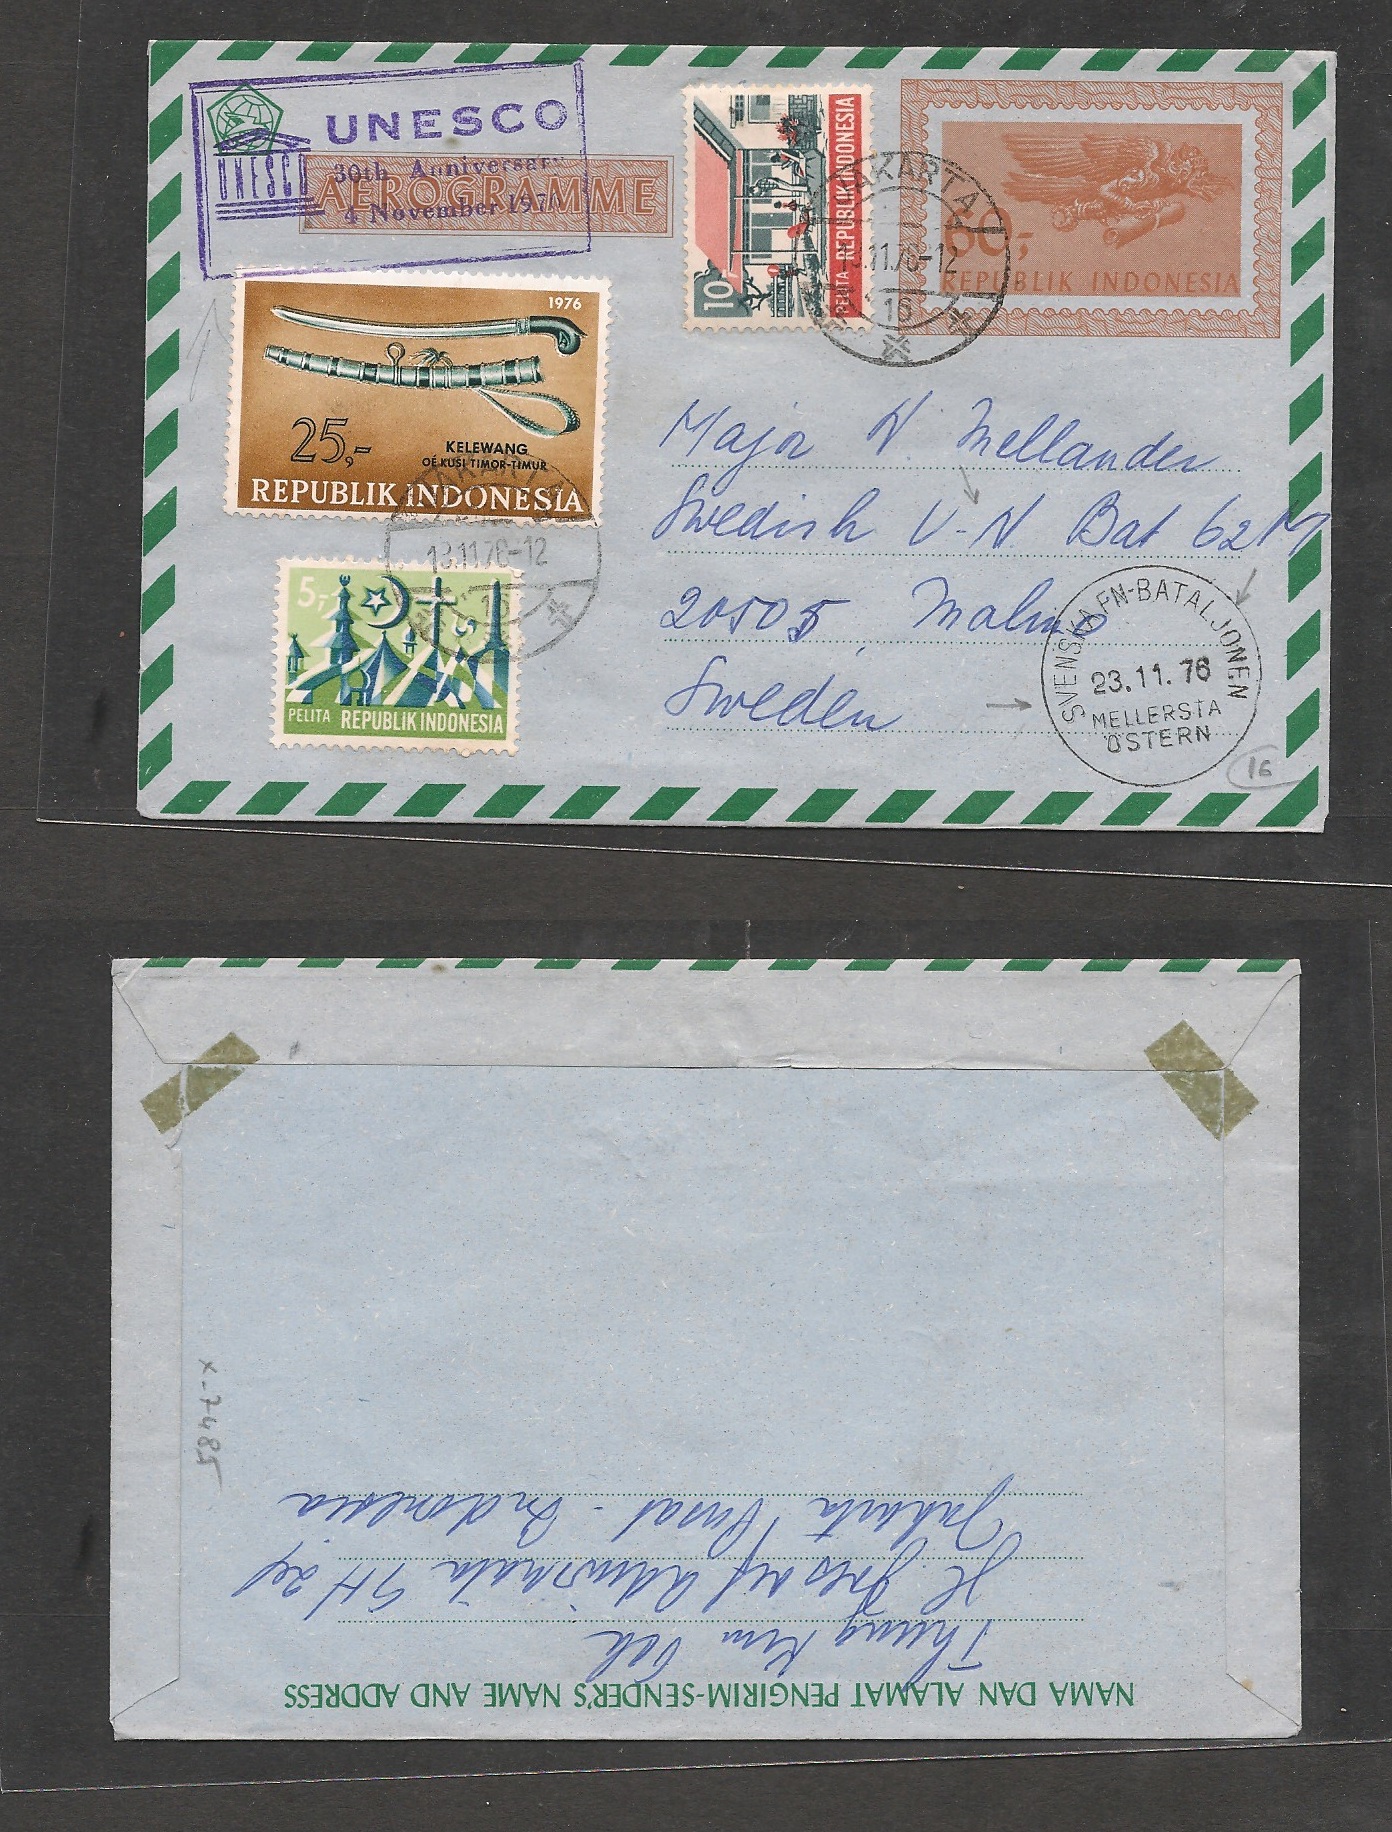 UNESCO
UNESCO
30th Anniversary
4 November 1976
AEROGRAMME
10,-
PELITA REPUBLIK INDONESIA
JAKARTA
.11.76-12
16
60,-
REPUBLIK INDONESIA
1976
25,-
KELEWANG
OÉ KUSI TIMOR-TIMUR
REPUBLIK INDONESIA
JAKARTA
13.11.76-12
16
5,-
PELITA REPUBLIK INDONESIA
Major N Mellander
Swedish U-N. Bat 62M
20505, Malmo
Sweden
SVENSKA FN-BATALJONEN
23.11.76
MELLERSTA
ÖSTERN
16
x-7485
NAMA DAN ALAMAT PENGIRIM-SENDER'S NAME AND ADDRESS
Thung Kim
Jl.
Jakarta Pusat - Indonesia